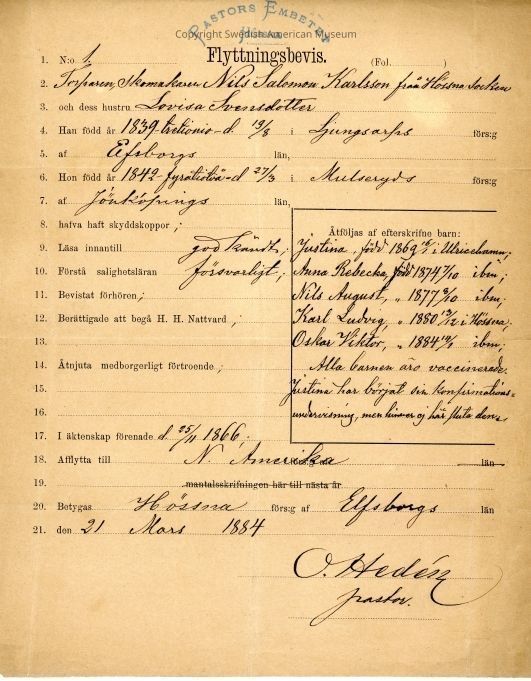 PASTORS EMBETET
Hössna
Copyright Swedish American Museum
Flyttningsbevis.
1. N:o 1. (Fol. )
2. Torparen, Skomakaren Nils Salomon Karlsson från Hössna Socken
3. och dess hustru Lovisa Svensdotter
4. Han född år 1839-trettionio-d. 19/8 i Ljungsarps förs:g
5. af Elfsborgs län,
6. Hon född år 1842-fyratiotvå-d 27/3 i Mulseryds förs:g
7. af Jönköpings län,
8. hafva haft skyddskoppor,;
9. Läsa innantill godkändt,;
10. Förstå salighetsläran försvarligt,;
11. Bevistat förhören,;
12. Berättigade att begå H. H. Nattvard,;
13.
14. Åtnjuta medborgerligt förtroende,;
15.
16.
Åtföljas af efterskrifne barn:
Justina, född 1869 i Ulricehamn;
Anna Rebecka, född 1874 /10 ibm;
Nils August, „ 1877 /10 ibm;
Karl Ludvig, „ 1880 /12 i Hössna;
Oskar Viktor, „ 1884 ibm;
Alla barnen äro vaccinerade.
Justina har börjat sin konfirmations-
undervisning, men hinner ej här sluta den.
17. I äktenskap förenade d. 25/11 1866,;
18. Afflytta till N. Amerika län
19. mantalsskrifningen här till nästa år
20. Betygas Hössna förs:g af Elfsborgs län
21. den 21 Mars 1884
O. Hedén
pastor.